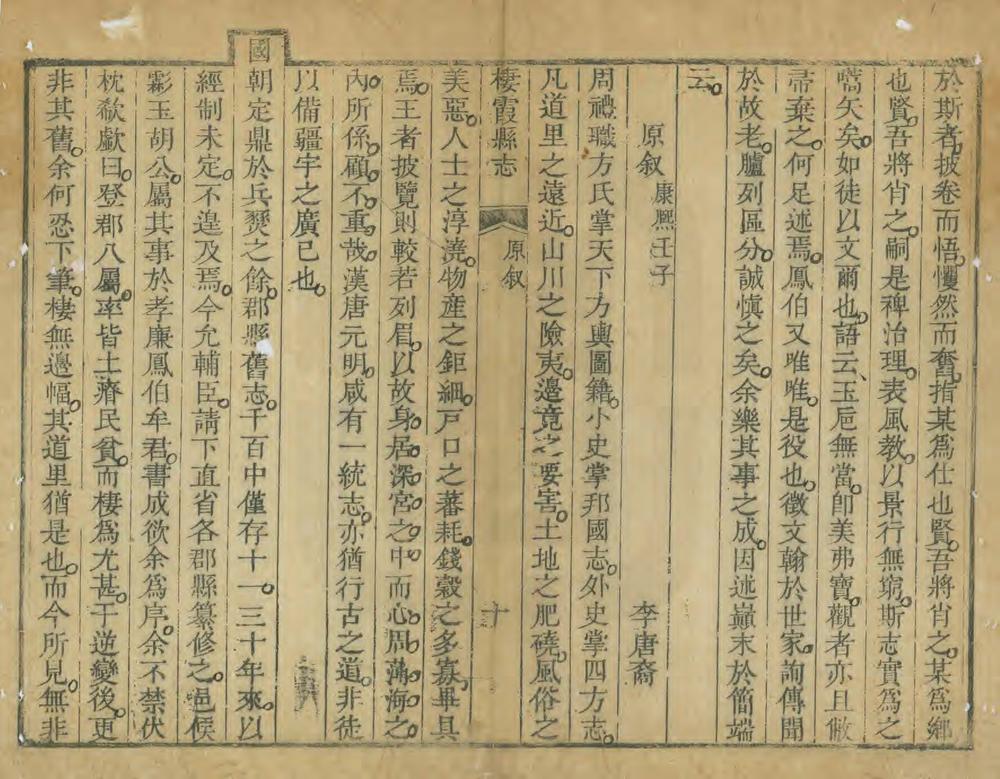 於斯者。披卷而悟。懼然而奮。指某爲仕也賢。吾將肖之。某爲鄉
也賢。吾將肖之。嗣是稗治理。表風教。以景行無窮。斯志實爲之
嚆矢矣。如徒以文爾也。語云、玉巵無當。卽美弗寶。觀者亦且敝
帚棄之。何足述焉。鳳伯又唯唯。是役也。徵文翰於世家。詢傳聞
於故老。臚列區分。誠愼之矣。余樂其事之成。因述巔末於簡端
云。
原叙 康熙壬子 李唐裔
周禮職方氏掌天下方輿圖籍。小史掌邦國志。外史掌四方志。
凡道里之遠近。山川之險夷。邊竟之要害。土地之肥磽。風俗之
棲霞縣志 原叙 十
美惡。人士之淳澆。物産之鉅細。戸口之蕃耗。錢穀之多寡。畢具
焉。王者披覽則較若列眉。以故身居深宮之中而心周薄海之
內。所係顧不重哉。漢唐元明。咸有一統志。亦猶行古之道。非徒
以備疆宇之廣已也。
國朝定鼎於兵燹之餘。郡縣舊志。千百中僅存十一。三十年來。以
經制未定。不遑及焉。今允輔臣。請下直省各郡縣纂修之。邑侯
霦玉胡公。屬其事於孝廉鳳伯牟君。書成欲余爲序。余不禁伏
枕欷歔曰。登郡八屬。率皆土瘠民貧。而棲爲尤甚。于逆變後。更
非其舊。余何忍下筆。棲無邊幅。其道里猶是也。而今所見。無非